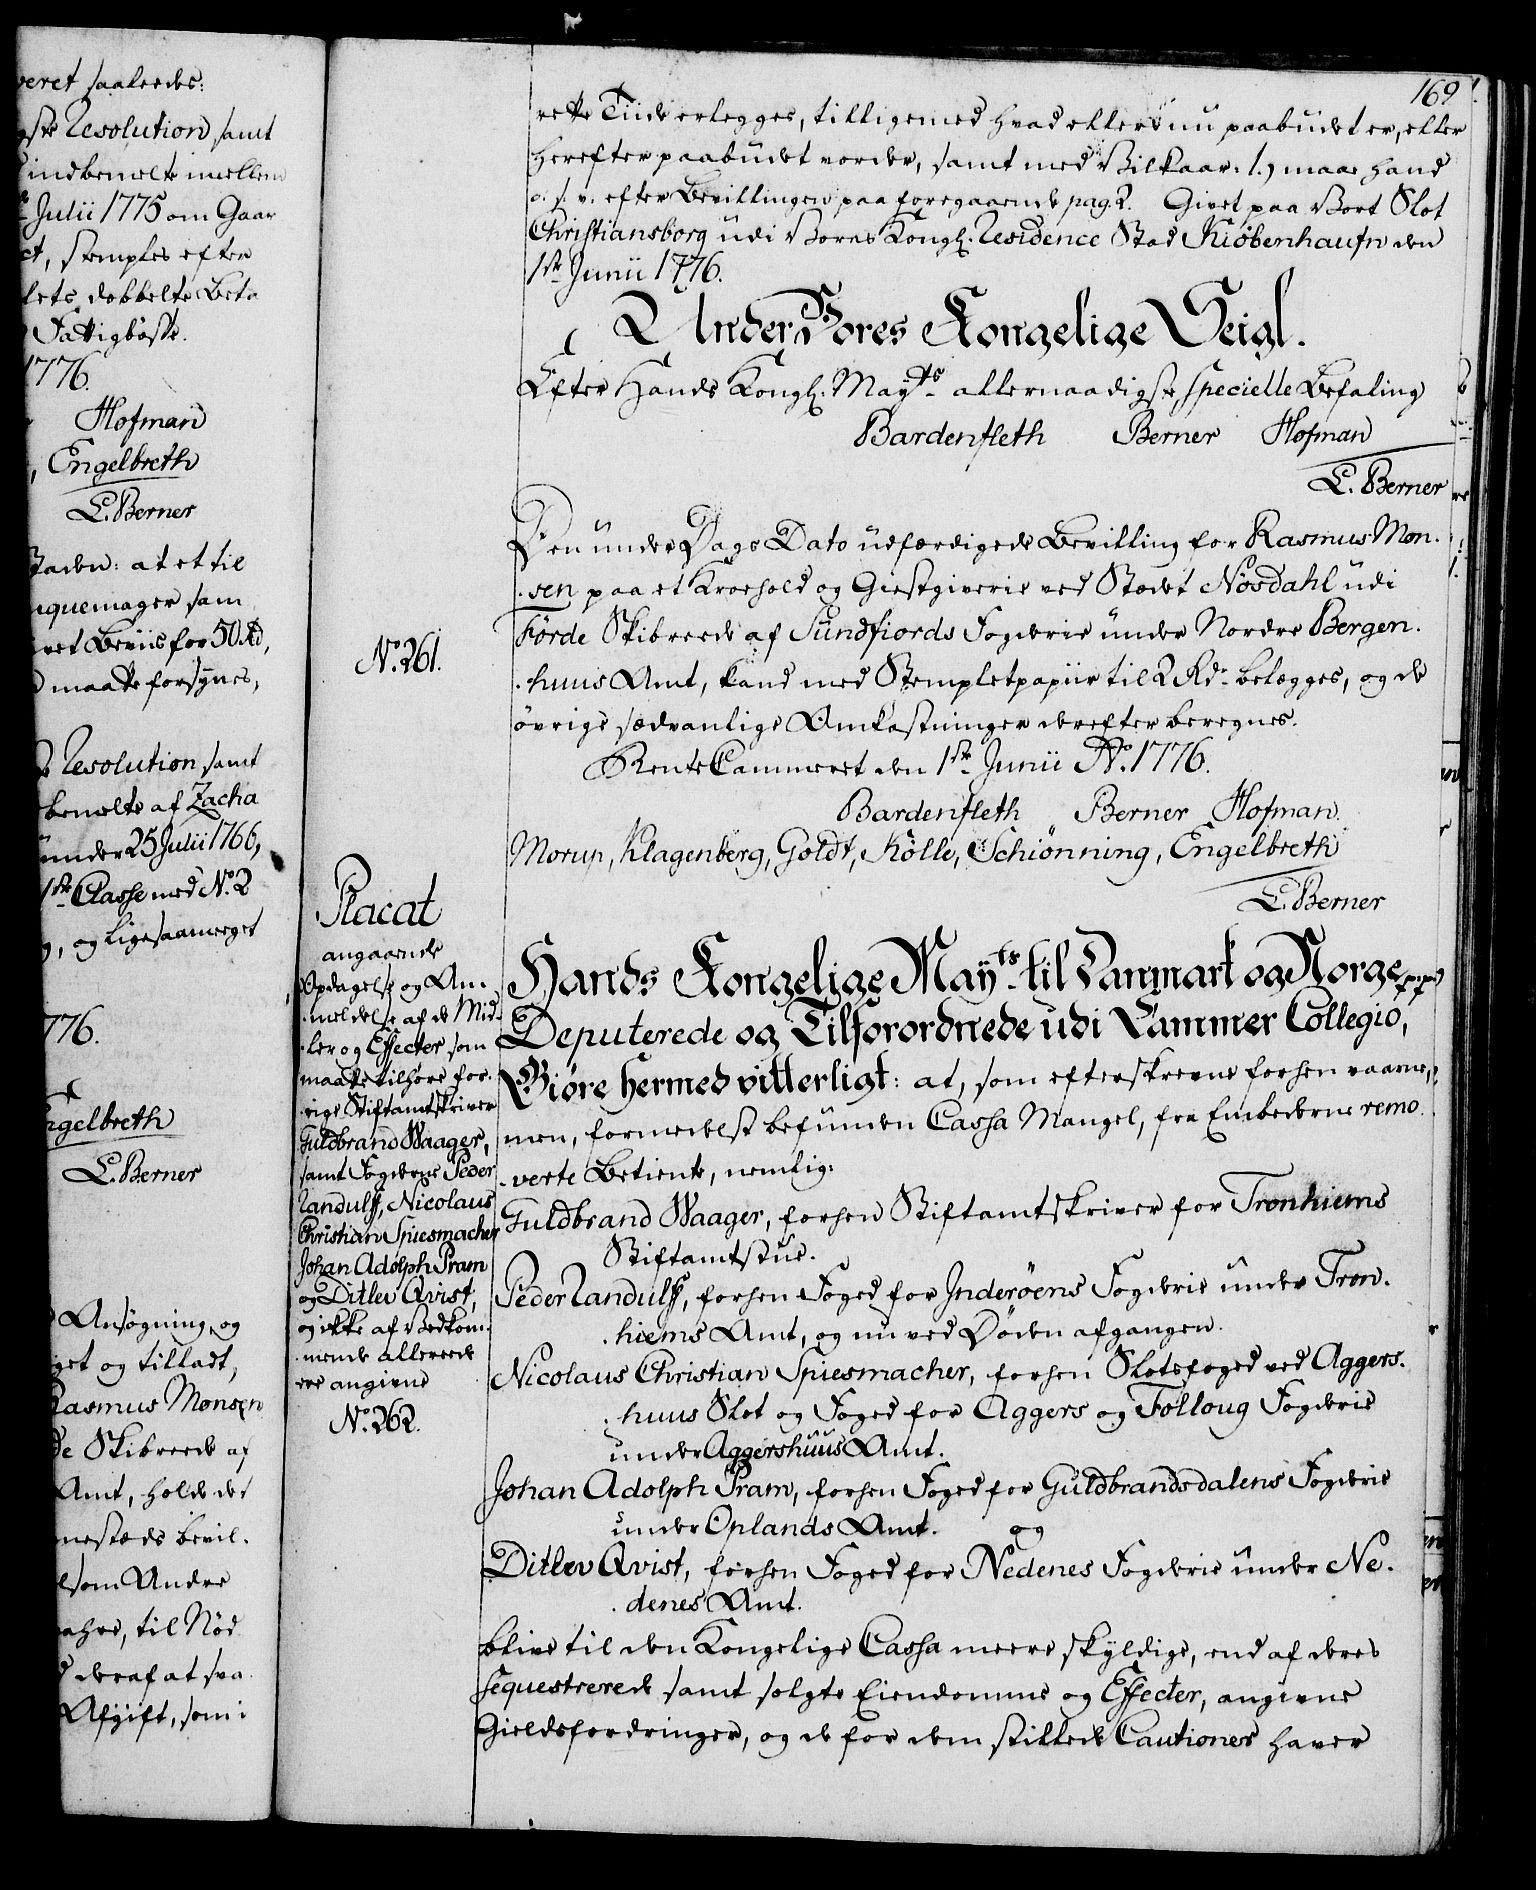 veret saaleedes:
gste Resolution, samt
indbemelte imellem
Julii 1775 om Gaar
et, stemples efter
lets dobbelte Beta
Fattigbösse.
1776.
Hofman
, Engelbreth
L. Berner
Staden: at et til
nquemager som
vet Beviis for 50 Rd,
maatte forsÿnes,
Resolution, samt
bemelte af Zacha
under 25 Julii 1766,
1ste Classe med No. 2
og, og ligesaameget
776.
ngelbreth
L. Berner
Ansøgning, og
get og tilladt,
Rasmus Monsen
de Skibreede af
Amt, holde det
nesteds bevil-
som Andre
ahre, til Nød
d deraf at sva
Afgift, som i
169
rette Tiide erlegges, tilligemed hvad ellers nu paabudet er, eller
herefter paabudet vorder, samt med Vilkaar: 1.) maae hand
o. s. v. efter Bevillingen paa foregaaende pag. 2. Givet paa Vort Slot
Christiansborg udi Vores Kongl. Residence Stad Kiøbenhaufn den
1ste Junii 1776.
Under Vores Kongelige Seigl.
Efter Hands Kongl. Mayts allernaadigste specielle Befaling
Bardenfleth Berner Hofman
L. Berner
No. 261.
Den under Dags Dato udfærdigede Bevilling for Rasmus Mon-
-sen paa et Kroehold og Giestgiverie ved Stædet Nösdahl udi
Förde Skibreede af Sündfiords Fogderie under Nordre Bergen-
-huus Amt, kand med Stempletpapiir til 2 Rdr belegges, og de
övrige sædvanlige Omkostninger derefter beregnes.
RenteCammeret den 1ste Junii Ao. 1776.
Bardenfleth Berner Hofman
Morup, Klagenberg, Goldt, Kölle, Schiönning, Engelbreth
L. Berner
Placat
angaaende
Opdagelse og An-
-meldelse af de Mid-
-ler og Effecter som
maatte tilhöre for-
-rige Stiftamtskriver
Guldbrand Waager,
samt Fogderne Peder
Randulff, Nicolaus
Christian Spiesmacher
Johan Adolph Pram
og Ditlev Qvist,
og ikke af Vedkom-
-mende allereede
ere angivne
No. 262.
Hands Kongelige Mayts til Danmark og Norge p.p.
Deputerede og Tilforordnede udi Cammer Collegio,
Giöre hermed vitterligt: at, som efterskrevne forhen vaaren-
men, formedelst befunden Cassa Mangel, fra Embederne remo-
-verte Betiente, nemlig:
Guldbrand Waager, forhen Stiftamtskriver for Tronhiems
Stiftamtstue.
Peder Randulff, forhen Foged for Inderöens Fogderie under Tron-
-hiems Amt, og nu ved Döden afgangen.
Nicolaus Christian Spiesmacher, forhen Slotsfoged ved Aggers-
-huus Slot og Foged for Aggers og Folloug Fogderie
under Aggershuus Amt.
Johan Adolph Pram, forhen Foged for Guldbrandsdalens Fogderie
under Oplands Amt. og
Ditlev Qvist, forhen Foged for Nedenes Fogderie under Ne-
-denes Amt.
blive til den Kongelige Cassa meere skyldige, end af deres
sequestrerede samt solgte Eiendomme og Effecter, angivne
Gieldsfordringer, og de for dem stillede Cautioner haver